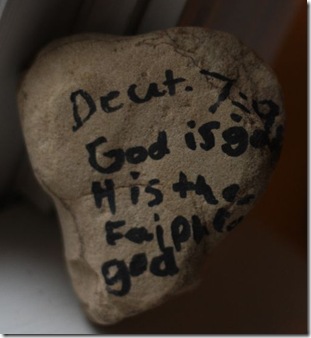 Deut. 7:9
God is god
H is the
Faiphful
god